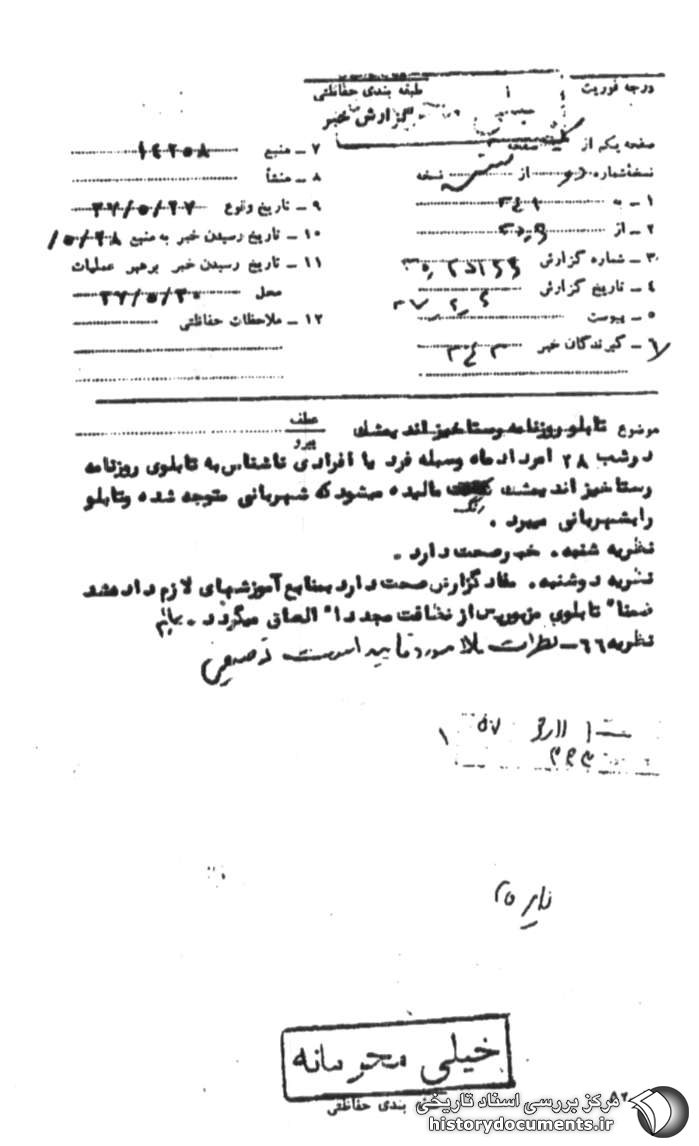 درجه فوریت
طبقه بندی حفاظتی
گزارش خبر
صفحه یکم از صفحه
نسخه شماره از نسخه
۱ ـ به ۳۴۱
۲ ـ از
۳ ـ شماره گزارش
۴ ـ تاریخ گزارش
۵ ـ پیوست
۶ ـ گیرندگان خبر ۳۴۳
۷ ـ منبع ۱۴۲۵۸
۸ ـ منشأ
۹ ـ تاریخ وقوع ۳۷/۵/۲۷
۱۰ ـ تاریخ رسیدن خبر به منبع ۲۸/۵/
۱۱ ـ تاریخ رسیدن خبر برهبر عملیات
محل ۳۷/۵/۳۰
۱۲ ـ ملاحظات حفاظتی
موضوع تابلو روزنامه رستاخیز اندیمشک
عطف
پیرو
درشب ۲۸ امرداد ماه وسیله فرد یا افرادی ناشناس به تابلوی روزنامه
رستاخیز اندیمشک رنگ مالیده میشود که شهربانی متوجه شده و تابلو
را بشهربانی میبرد .
نظریه شنبه . خبر صحت دارد .
نظریه دوشنبه . مفاد گزارش صحت دارد بمنابع آموزشهای لازم داده شد
ضمنا" تابلوی مزبور پس از نظافت مجددا" الصاق میگردد .
نظریه ۶۶ ـ نظرات بالا مورد تایید است
خیلی محرمانه
بندی حفاظتی
۸۲
مرکز بررسی اسناد تاریخی
historydocuments.ir